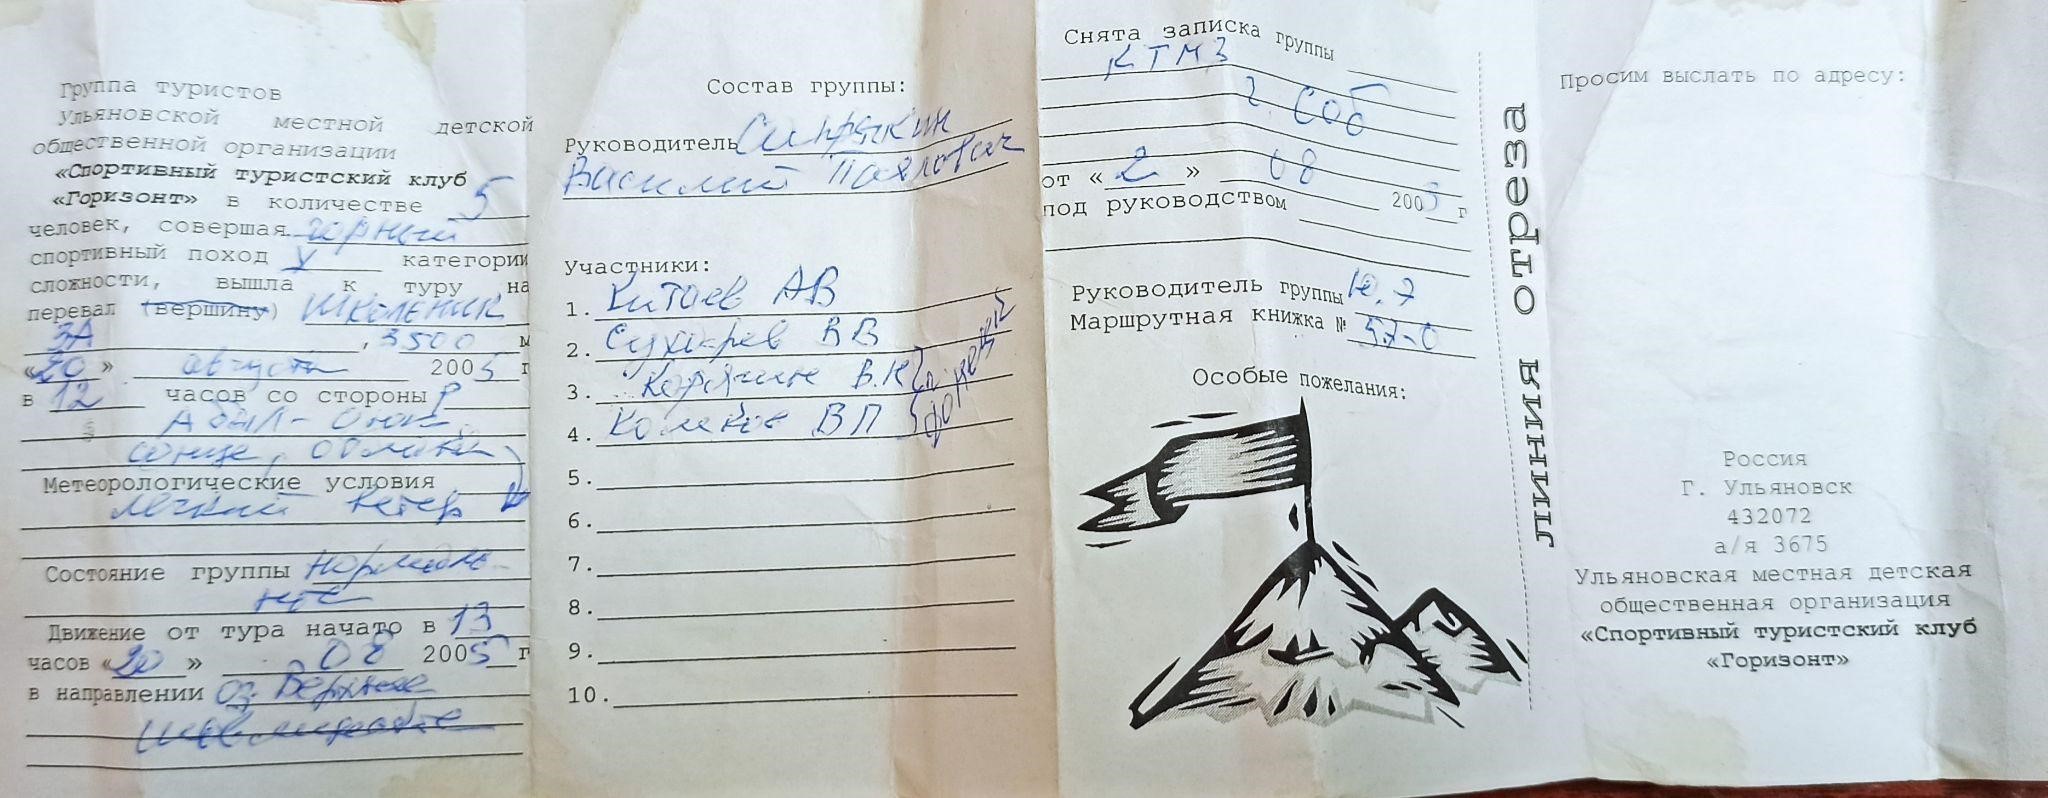 Группа туристов
Ульяновской местной детской
общественной организации
«Спортивный туристский клуб
«Горизонт» в количестве 5
человек, совершая горный
спортивный поход V категории
сложности, вышла к туру на
перевал (вершину) Школьник
3А, 3500 м
«20» августа 2005 г
в 12 часов со стороны р
солнце, облака,
Метеорологические условия
легкий ветер
Состояние группы нормаль-
ное
Движение от тура начато в 13
часов «20» 08 2005 г
в направлении оз. Верхнее
Состав группы:
Руководитель
Василий Павлович
Участники:
1. Китаев АВ
2. Сухарев ВВ
3. В.Н
4. ВП
5.
6.
7.
8.
9.
10.
Снята записка группы
КТМЗ
г Соб
от «2» 08 2005 г
под руководством
Руководитель группы
Маршрутная книжка №
Особые пожелания:
линия отреза
Просим выслать по адресу:
Россия
Г. Ульяновск
432072
а/я 3675
Ульяновская местная детская
общественная организация
«Спортивный туристский клуб
«Горизонт»